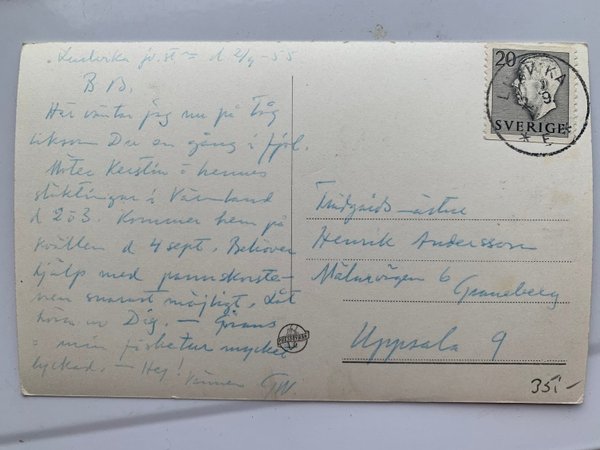 Ludvika jv. st. d. 2/9 - 55
B B.
Här väntar jag nu på tåg
liksom Du en gång i fjol.
Möter Kerstin o hennes
släktingar i Värmland
d 2 o 3. Kommer hem på
kvällen d 4 sept. Behöver
hjälp med pannskorste-
nen snarast möjligt. Låt
höra av Dig. — Görans
o min fisketur mycket
lyckad. — Hej!
Vännen GW.
20
SVERIGE
LUDVIKA
Trädgårdsmästare
Henrik Andersson
Mälarvägen 6
Graneberg
Uppsala 9
PRESSBYRÅN
35:-